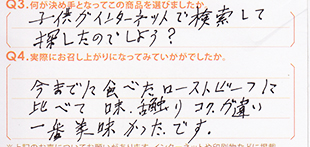 Q3.何が決め手となってこの商品を選びましたか。
子供がインターネットで検索して
探したのでしょう?
Q4.実際にお召し上がりになってみていかがでしたか。
今までに食べたローストビーフに
比べて 味、舌触り コクが違い
一番美味かったです。